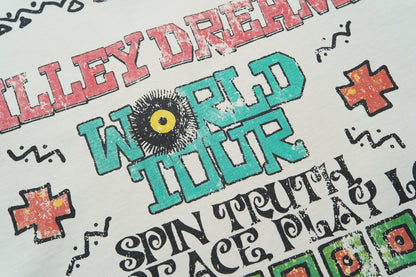 LLEY DREAM
WORLD
TOUR
SPIN TRUTH
PLAY